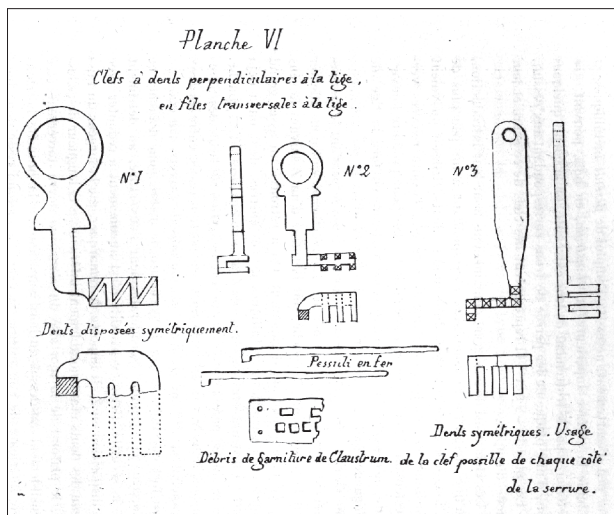 Planche VI
Clefs à dents perpendiculaires à la lige,
en files transversales à la lige.
N°1
N°2
N°3
Dents disposées symétriquement.
Pessuli en fer
Débris de garniture de Claustrum.
Dents symétriques. Usage
de la clef possible de chaque côté
de la serrure.